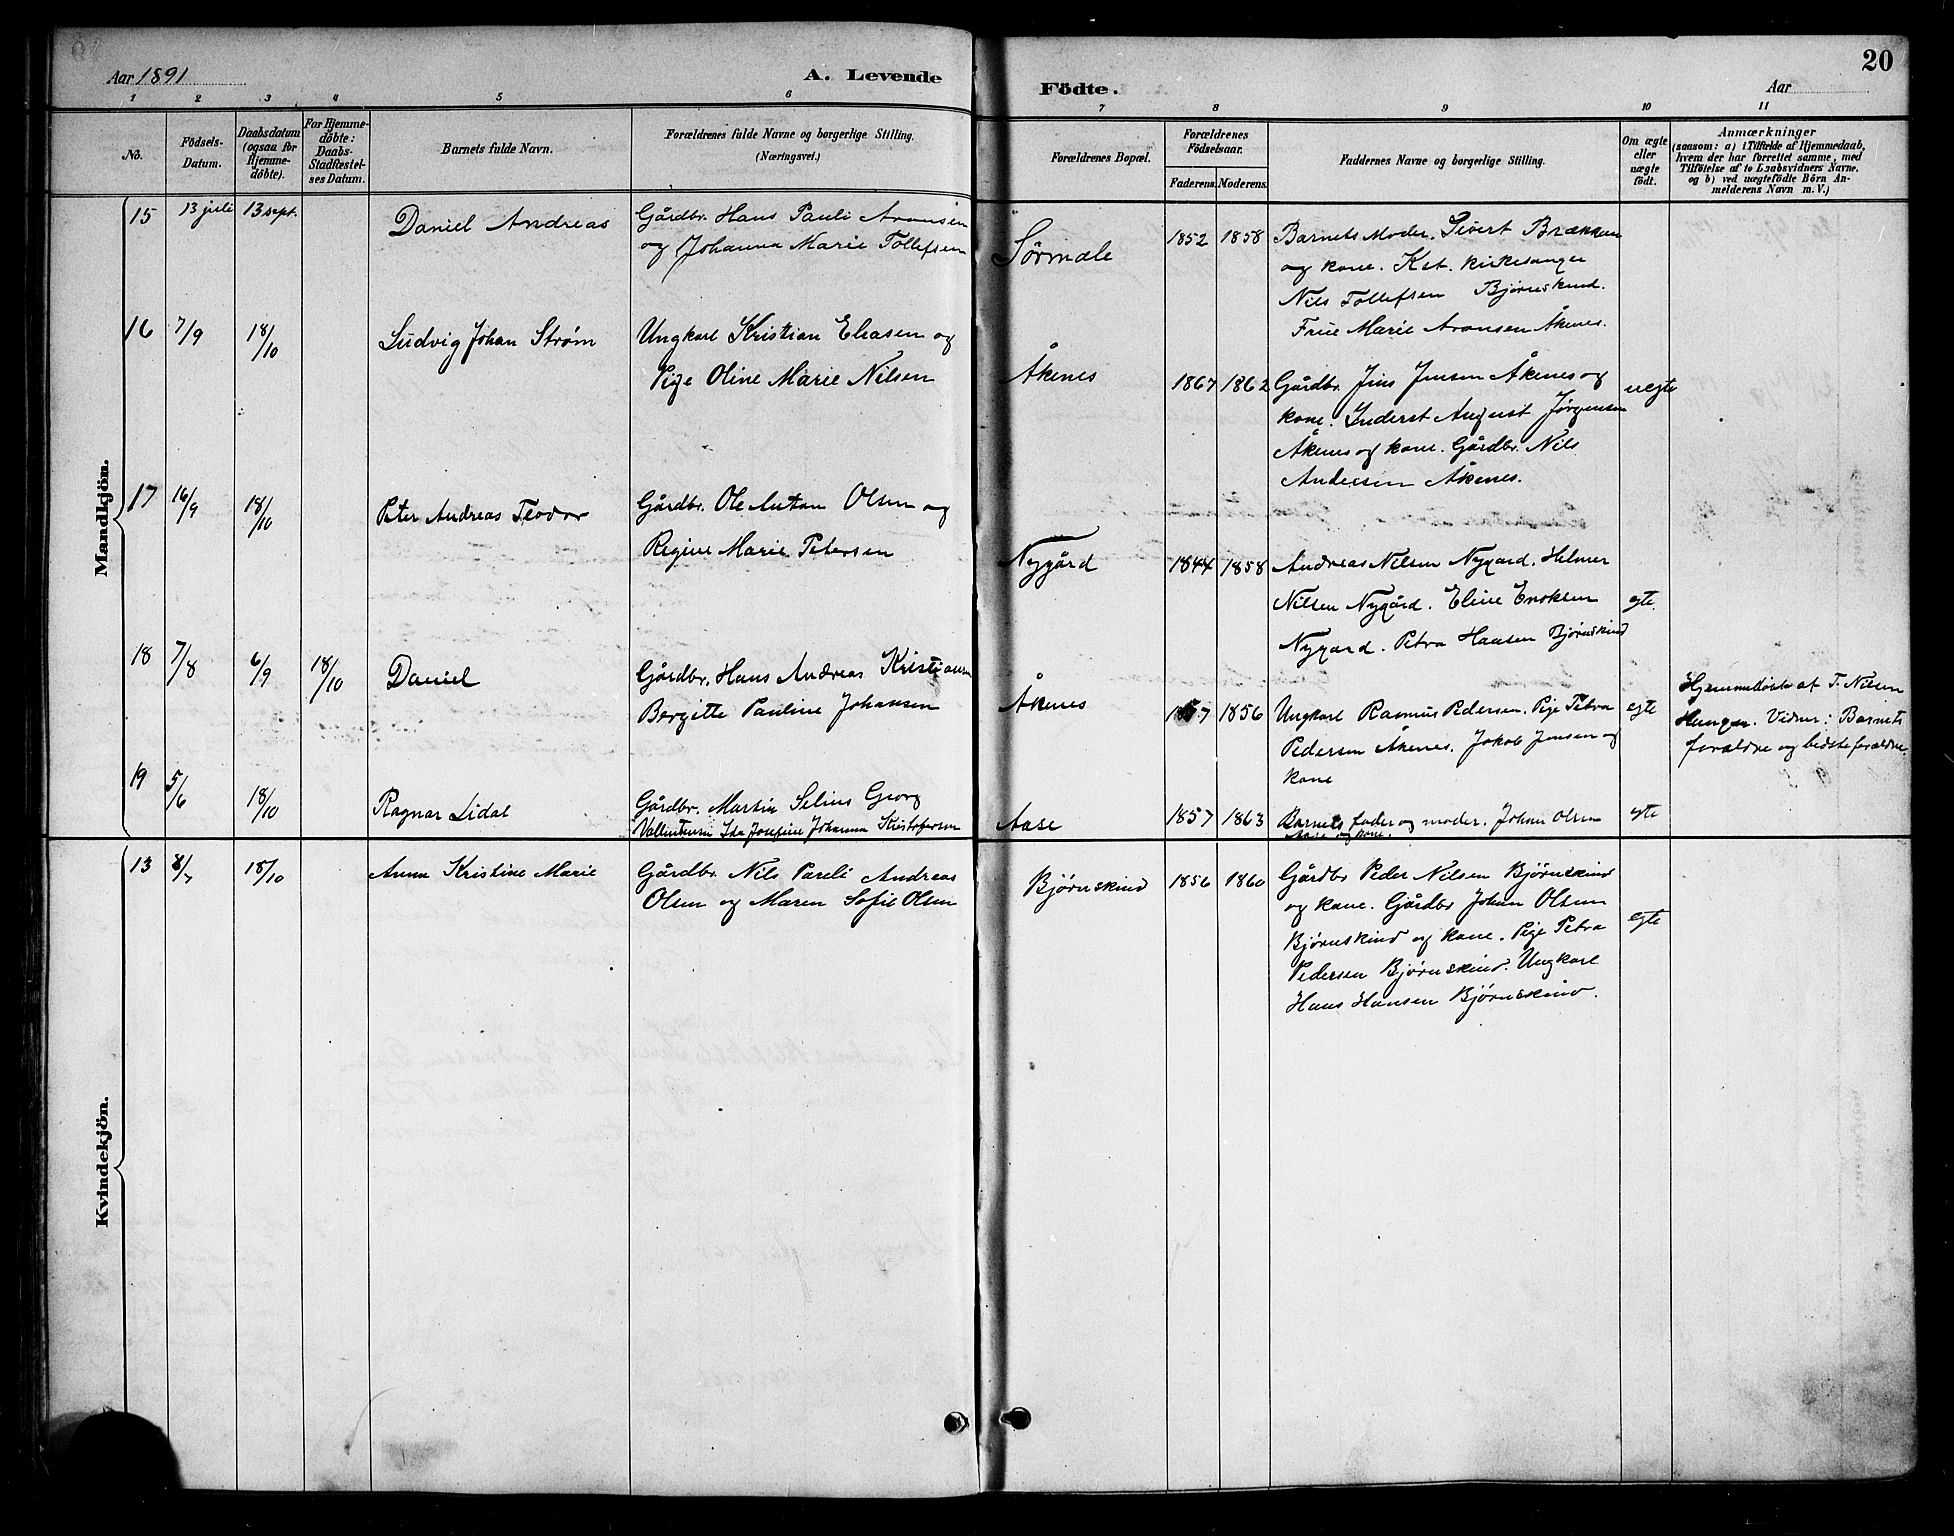 Aar 1891
A. Levende
Födte.
Aar
20
1 2 3 4 5 6 7 8 9 10 11
No.
Födsels-
Datum.
Daabsdatum
(ogsaa for
Hjemme-
döbte).
For Hjemme-
döbte:
Daabs-
Stadfæstel-
ses Datum.
Barnets fulde Navn.
Forældrenes fulde Navne og borgerlige Stilling.
(Næringsvei.)
Forældrenes Bopæl.
Forældrenes
Födselsaar.
Faderens. Moderens.
Faddernes Navne og borgerlige Stilling.
Om ægte
eller
uægte
födt.
Anmærkninger
(saasom: a) i Tilfælde af Hjemmedaab,
hvem der har forrettet samme, med
Tilföielse af to Daabsvidners Navne.
og b) ved uægtefödte Börn An-
melderens Navn m.V.)
Mandkjön.
15 13 juli 13 sept. Daniel Andreas
Gårdbr. Hans Pauli Aronsen
og Johanna Marie Tollefsen
Sörmæle 1852 1858
Barnets Moder. Sivert Brækken
og kone. Kst. kirkesanger
Nils Tollefsen Bjørnskind.
Frue Marie Aronsen Åkenes.
16 7/9 18/10 Ludvig Johan Strøm
Ungkarl Kristian Eliasen og
Pige Oline Marie Nilsen
Åkenes 1867 1862
Gårdbr. Jens Jensen Åkenes og
kone. Inderst August Jørgensen
Åkenes og kone. Gårdbr. Nils
Andersen Åkenes.
uegte
17 16/9 18/10 Peter Andreas Teodor
Gårdbr. Ole Anton Olsen og
Regine Marie Petersen
Nygård 1844 1858
Andreas Nilsen Nygard. Helmer
Nilsen Nygård. Eline Enoksen
Nygard. Petra Hansen Bjørnskind
egte.
18 7/8 6/9 18/10 Daniel
Gårdbr. Hans Andreas Kristiansen
Bergitte Pauline Johansen
Åkenes 1857 1856
Ungkarl Rasmus Pedersen. Pige Petra
Pedersen Åkenes. Jakob Jensen og
kone
egte
Hjemmedöbt af T. Nilsen
Vidner: Barnets
forældre og bedsteforældre.
19 5/6 18/10 Ragnar Lidal
Gårdbr. Martin Selius Georg
Vallentinsen Ida Josefine Johanna Kristofersen
Aase 1857 1863
Barnets fader og moder. Johan Olsen
Aase og kone.
egte
Kvindekjön.
13 8/7 18/10 Anna Kristine Marie
Gårdbr. Nils Pareli Andreas
Olsen og Maren Sofie Olsen
Bjørnskind 1856 1860
Gårdbr Peder Nilsen Bjørnskind
og kone. Gårdbr Johan Olsen
Bjørnskind og kone. Pige Petra
Pedersen Bjørnskind. Ungkarl
Hans Hansen Bjørnskind.
egte